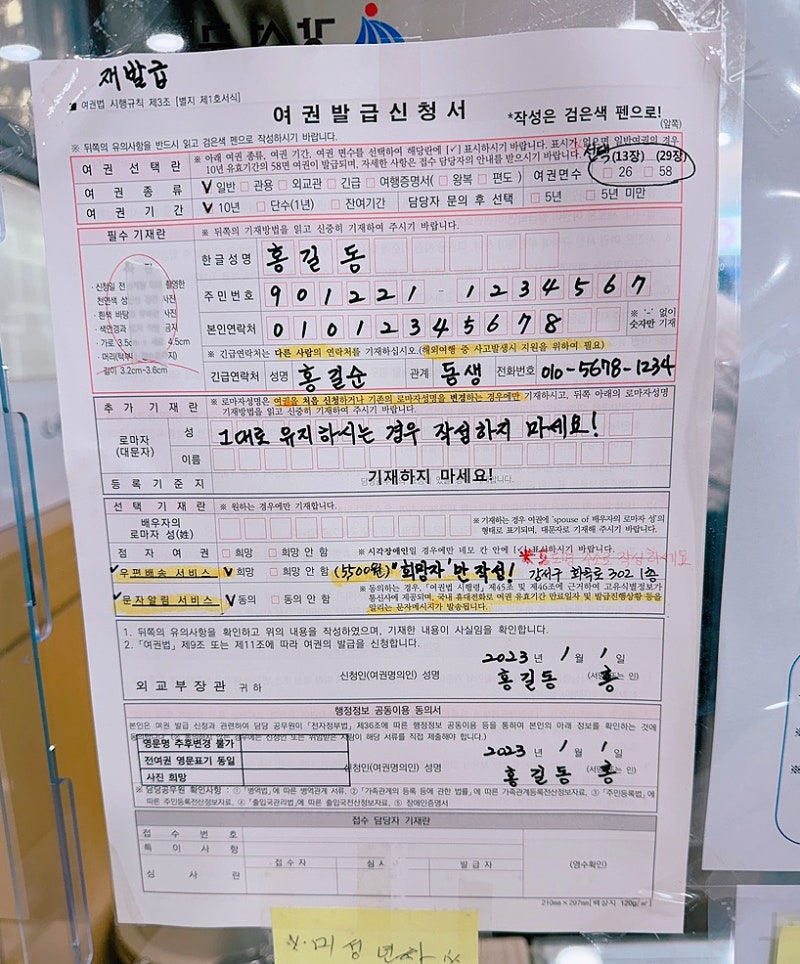 재발급
■ 여권법 시행규칙 제3조 [별지 제1호서식]
여권발급신청서
*작성은 검은색 펜으로!
(앞쪽)
※ 뒤쪽의 유의사항을 반드시 읽고 검은색 펜으로 작성하시기 바랍니다.
여권 선택란
※ 아래 여권 종류, 여권 기간, 여권 면수를 선택하여 해당란에 [✓] 표시하시기 바랍니다. 표시가 없으면 일반여권의 경우
10년 유효기간의 58면 여권이 발급되며, 자세한 사항은 접수 담당자의 안내를 받으시기 바랍니다.
선택 (13장) (29장)
여권 종류 ✓ 일반 □ 관용 □ 외교관 □ 긴급 □ 여행증명서(□ 왕복 □ 편도) 여권면수 □ 26 □ 58
여권 기간 ✓ 10년 □ 단수(1년) □ 잔여기간 담당자 문의 후 선택 □ 5년 □ 5년 미만
필수 기재란 ※ 뒤쪽의 기재방법을 읽고 신중히 기재하여 주시기 바랍니다.
· 신청일 전 촬영한
천연색 상 사진
· 흰색 바탕 사진
· 색안경과 금지
· 가로 3.5c 4.5cm
· 머리(턱부 지)
길이 3.2cm~3.6cm
한글성명 홍길동
주민번호 901221 - 1234567
본인연락처 01012345678 ※ '-' 없이
숫자만 기재
※ 긴급연락처는 다른 사람의 연락처를 기재하십시오. (해외여행 중 사고발생시 지원을 위하여 필요)
긴급연락처 성명 홍길순 관계 동생 전화번호 010-5678-1234
추가 기재란 ※ 로마자성명은 여권을 처음 신청하거나 기존의 로마자성명을 변경하는 경우에만 기재하시고, 뒤쪽 아래의 로마자성명
기재방법을 읽고 신중히 기재하여 주시기 바랍니다.
로마자
(대문자)
성
그대로 유지하시는 경우 작성하지 마세요!
이름
등록기준지 기재하지 마세요!
선택 기재란 ※ 원하는 경우에만 기재합니다.
배우자의
로마자 성(姓)
※ 기재하는 경우 여권에 'spouse of 배우자의 로마자 성'의
형태로 표기되며, 대문자로 기재해 주시기 바랍니다.
점자여권 □ 희망 □ 희망 안 함 ※ 시각장애인일 경우에만 네모 칸 안에 [✓]표시하시기 바랍니다.
✓ 우편배송 서비스 ✓ 희망 □ 희망 안 함 (5,500원) "희망자"만 작성! 강서구 화곡로 302 1층
✓ 문자알림 서비스 ✓ 동의 □ 동의 안 함
※ 동의하는 경우, 「여권법 시행령」 제45조 및 제46조에 근거하여 고유식별정보가
통신사에 제공되며, 국내 휴대전화로 여권 유효기간 만료일자 및 발급진행상황 등을
알리는 문자메시지가 발송됩니다.
1. 뒤쪽의 유의사항을 확인하고 위의 내용을 작성하였으며, 기재한 내용이 사실임을 확인합니다.
2. 「여권법」 제9조 또는 제11조에 따라 여권의 발급을 신청합니다.
2023년 1월 1일
신청인(여권명의인) 성명 홍길동 홍
외교부장관 귀하
행정정보 공동이용 동의서
본인은 여권 발급 신청과 관련하여 담당 공무원이 「전자정부법」 제36조에 따른 행정정보 공동이용 등을 통하여 본인의 아래 정보를 확인하는 것에
영문명 추후변경 불가
전여권 영문표기 동일
사진 희망
2023년 1월 1일
신청인(여권명의인) 성명 홍길동 홍
※ 담당공무원 확인사항 : ① 「병역법」에 따른 병역관계 서류. ② 「가족관계의 등록 등에 관한 법률」에 따른 가족관계등록전산정보자료. ③ 「주민등록법」에
따른 주민등록전산정보자료. ④ 「출입국관리법」에 따른 출입국전산정보자료. ⑤ 장애인증명서
접수 담당자 기재란
접수번호
특이사항
심사란 접수자 심사 발급자 (영수확인)
210mm×297mm[백상지 120g/㎡]
※ 미성년자